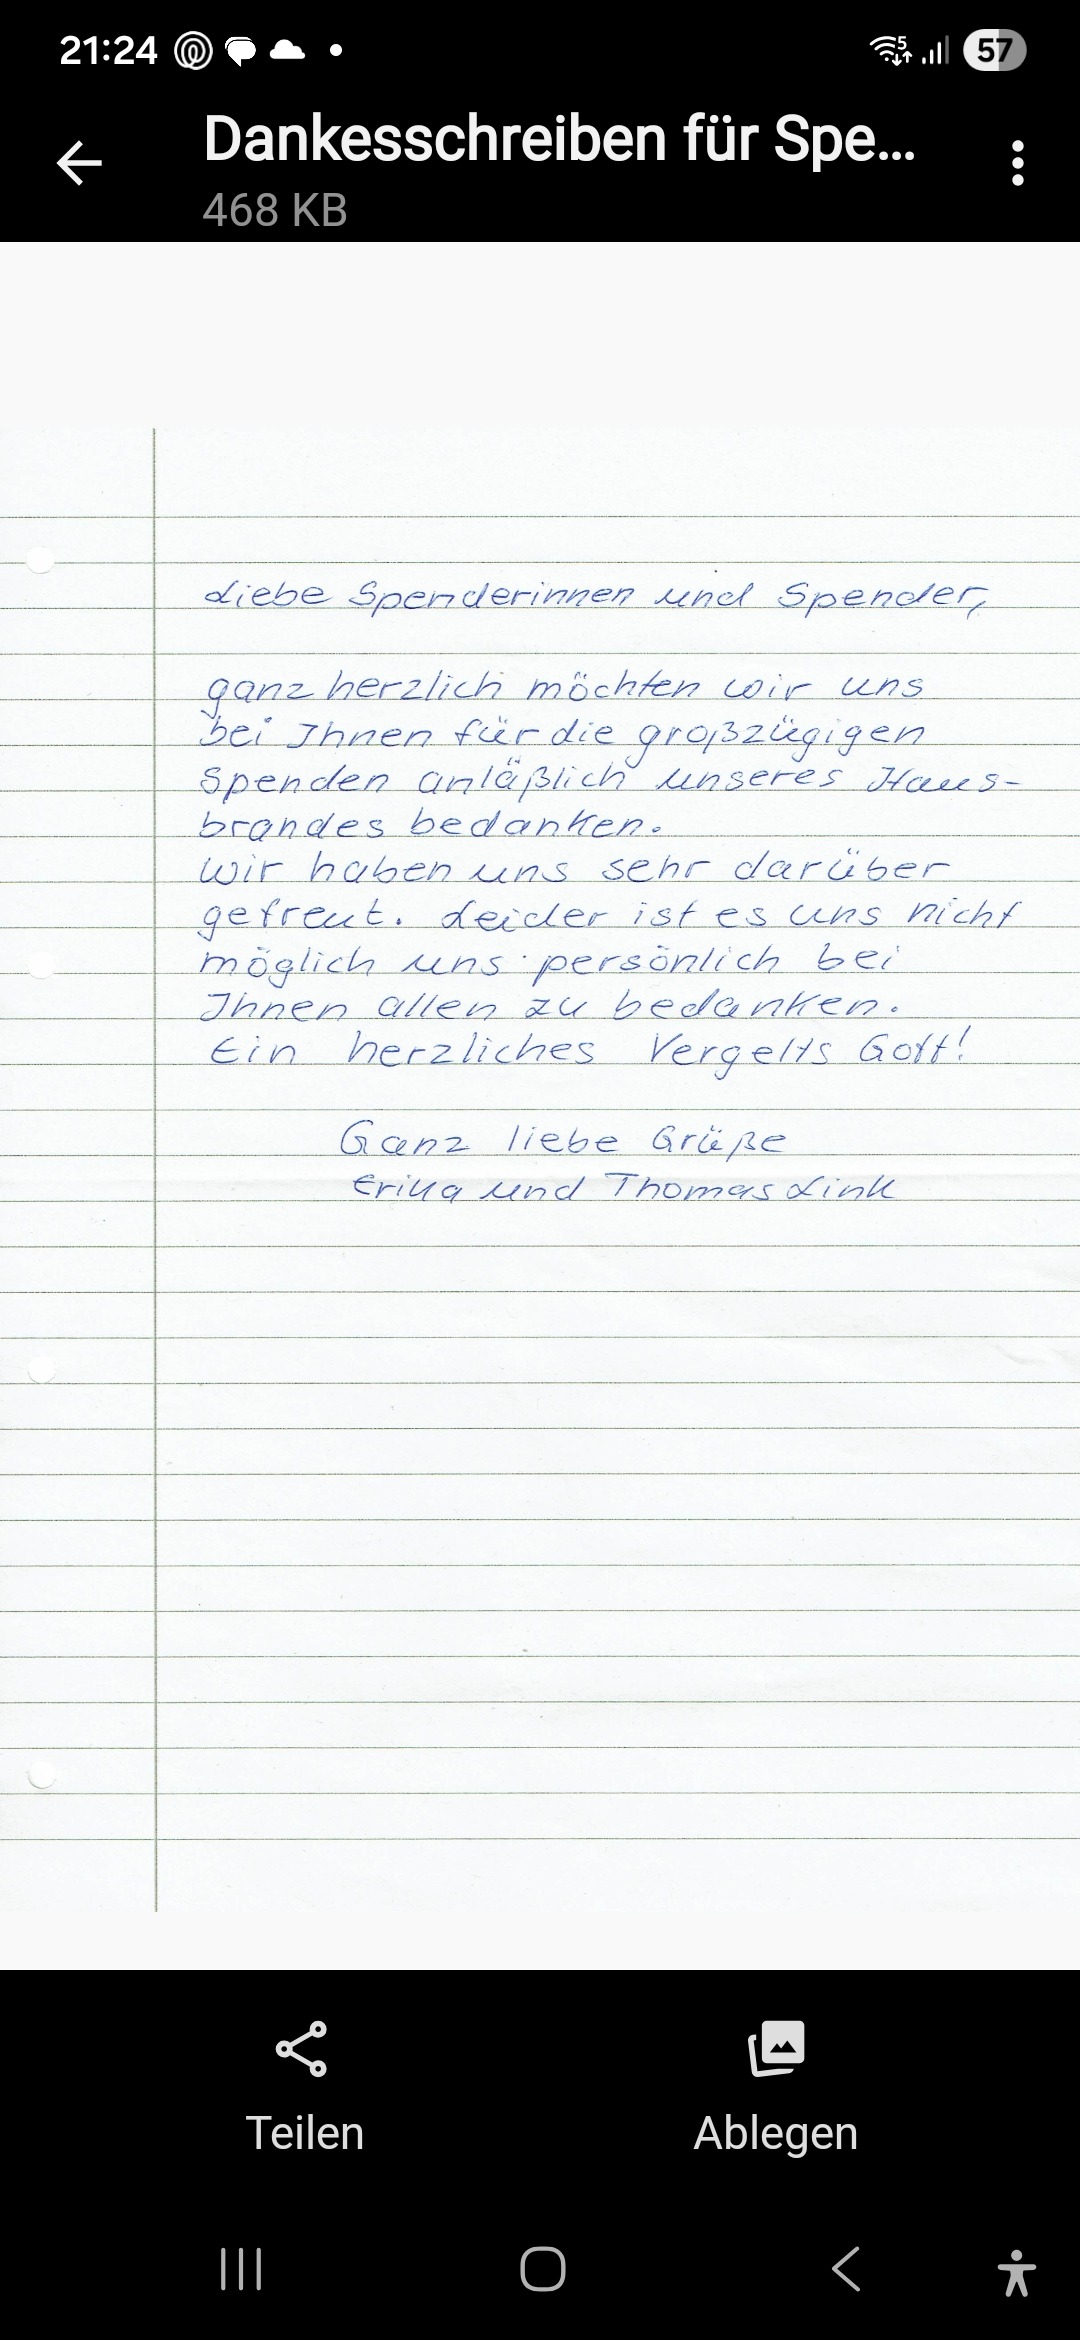 21:24
57
Dankesschreiben für Spe...
468 KB
Liebe Spenderinnen und Spender,
ganz herzlich möchten wir uns
bei Ihnen für die großzügigen
Spenden anläßlich unseres Haus-
brandes bedanken.
Wir haben uns sehr darüber
gefreut. Leider ist es uns nicht
möglich uns persönlich bei
Ihnen allen zu bedanken.
Ein herzliches Vergelts Gott!
Ganz liebe Grüße
Erika und Thomas Link
Teilen
Ablegen